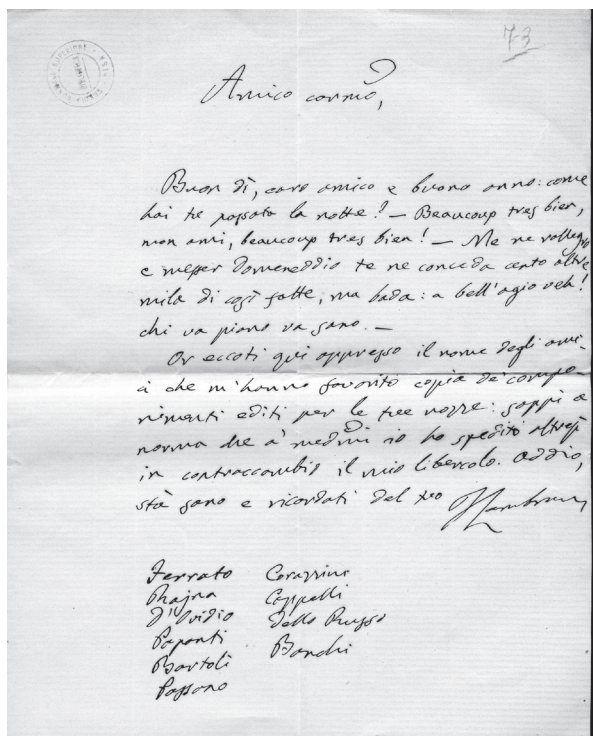 73
Amico carmo,
Buon dì, caro amico e buono anno: come
hai tu passato la notte? — Beaucoup tres bien,
mon ami, beaucoup tres bien! — Me ne rallegro
e messer Domeneddio te ne conceda cento altre
mila di così fatte, ma bada: a bell'agio veh!
chi va piano va sano. —
Or eccoti qui appresso il nome degli ami-
ci che m'hanno favorito copia de' compo-
nimenti editi per le tue nozze: sappi a
norma che a' medmi io ho spedito altresì
in contraccambio il mio libercolo. Addio,
stà sano e ricordati del tuo
Ferrato Corazzini
Rajna Cappelli
D'Ovidio Dello Russo
Papanti Banchi
Bartoli
Passano